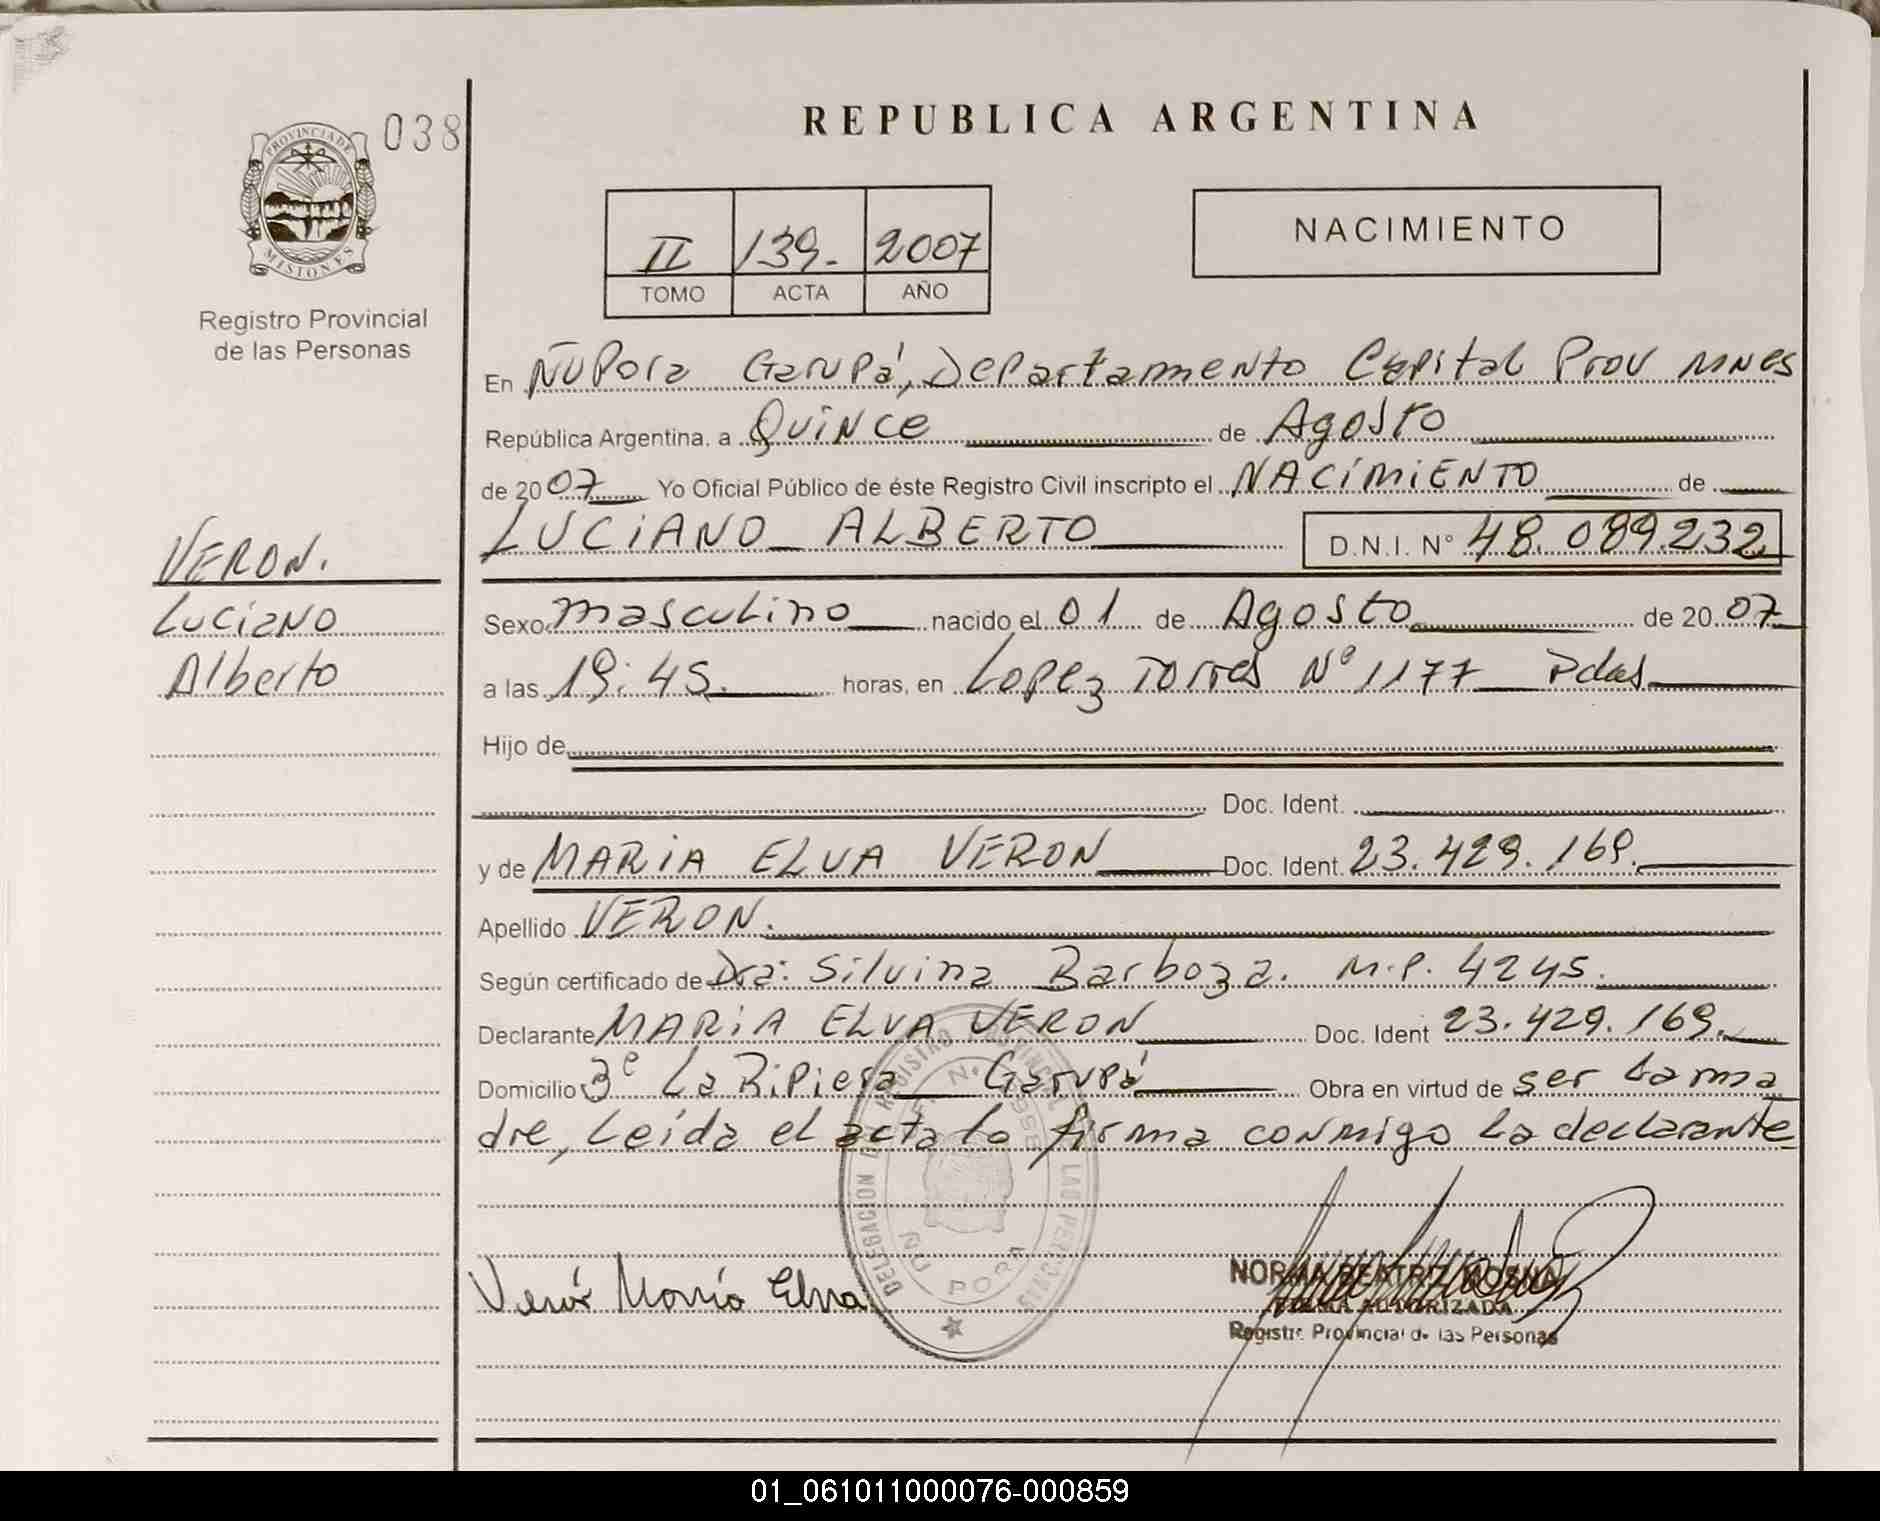 038
PROVINCIA DE
MISIONES
Registro Provincial
de las Personas
VERON.
Luciano
Alberto
REPUBLICA ARGENTINA
II 139. 2007
TOMO ACTA AÑO
NACIMIENTO
En ÑuPora Garupá, Departamento Capital Prov MNes
República Argentina, a Quince de Agosto
de 2007 Yo Oficial Público de éste Registro Civil inscripto el NACIMIENTO de
LUCIANO ALBERTO D.N.I. N° 48.089.232
Sexo masculino nacido el 01 de Agosto de 2007
a las 19:45. horas, en Lopez Torres Nº 1177 Pdas
Hijo de
Doc. Ident.
y de MARIA ELVA VERON Doc. Ident. 23.429.169.
Apellido VERON.
Según certificado de Dra: Silvina Barboza. M.P. 4245.
Declarante MARIA ELVA VERON Doc. Ident 23.429.169.
Domicilio 3ª La Ripiera Garupá Obra en virtud de ser la ma
dre, Leída el acta la firma conmigo la declarante
DELEGACION REGISTRO PROVINCIAL LAS PERSONAS
ÑU PORA
Verón María Elva
NORMA BEATRIZ
FIRMA AUTORIZADA
Registro Provincial de las Personas
01_061011000076-000859